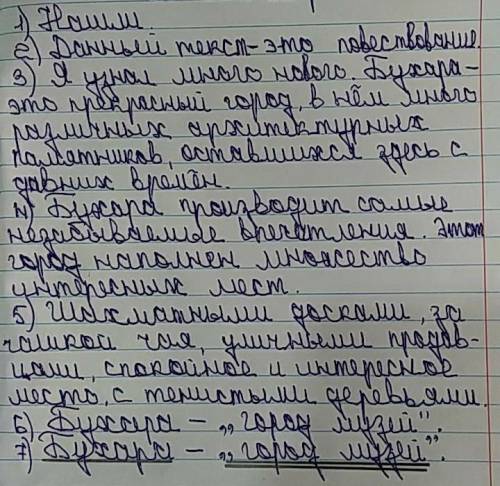 1) Нашли.
2) Данный текст - это повествование.
3) Я узнал много нового. Бухара -
это прекрасный город, в нём много
различных архитектурных
памятников, оставшихся здесь с
давних времён.
4) Бухара производит самые
незабываемые впечатления. Этот
город наполнен множество
интересных мест.
5) Шахматными досками, за
чашкой чая, уличными продав-
цами, спокойное и интересное
место, с тенистыми деревьями.
6) Бухара - „город музей".
7) Бухара - „город музей".